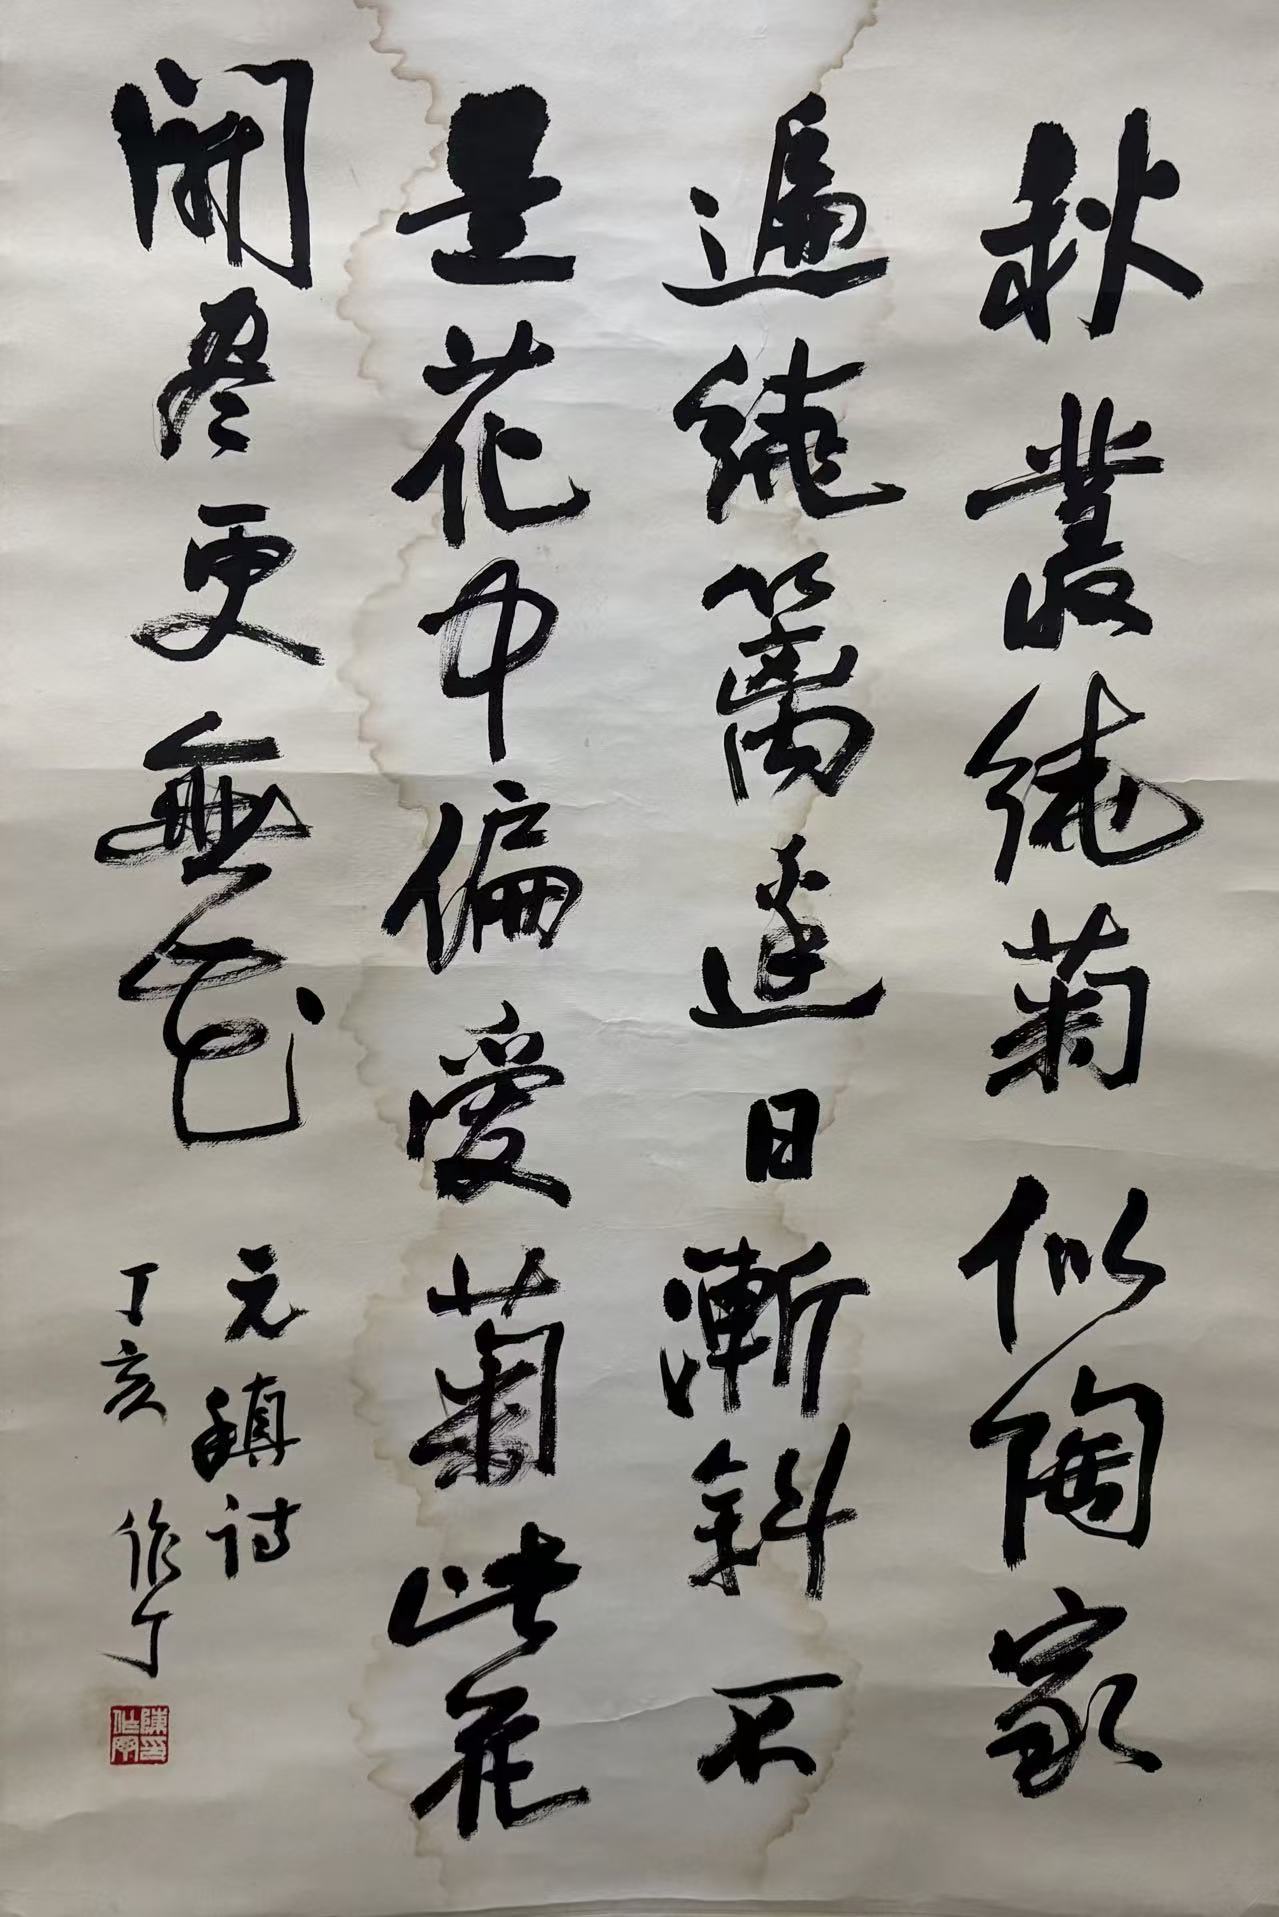 秋叢繞菊似陶家
遍繞籬邊日漸斜不
是花中偏愛菊此花
開盡更無花
元稹詩
丁亥